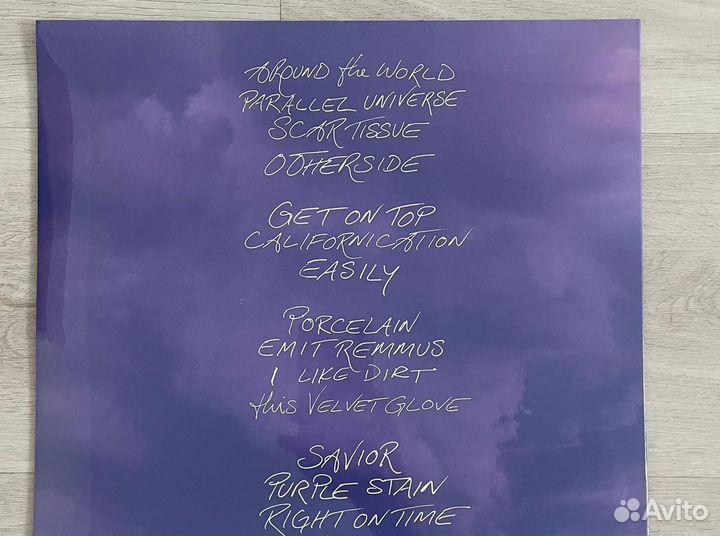 AROUND the WORLD
PARALLEL UNIVERSE
SCAR TISSUE
OTHERSIDE
GET ON TOP
CALIFORNICATION
EASILY
PORCELAIN
EMIT REMMUS
I LIKE DIRT
this VELVET GLOVE
SAVIOR
PURPLE STAIN
RIGHT ON TIME
Avito